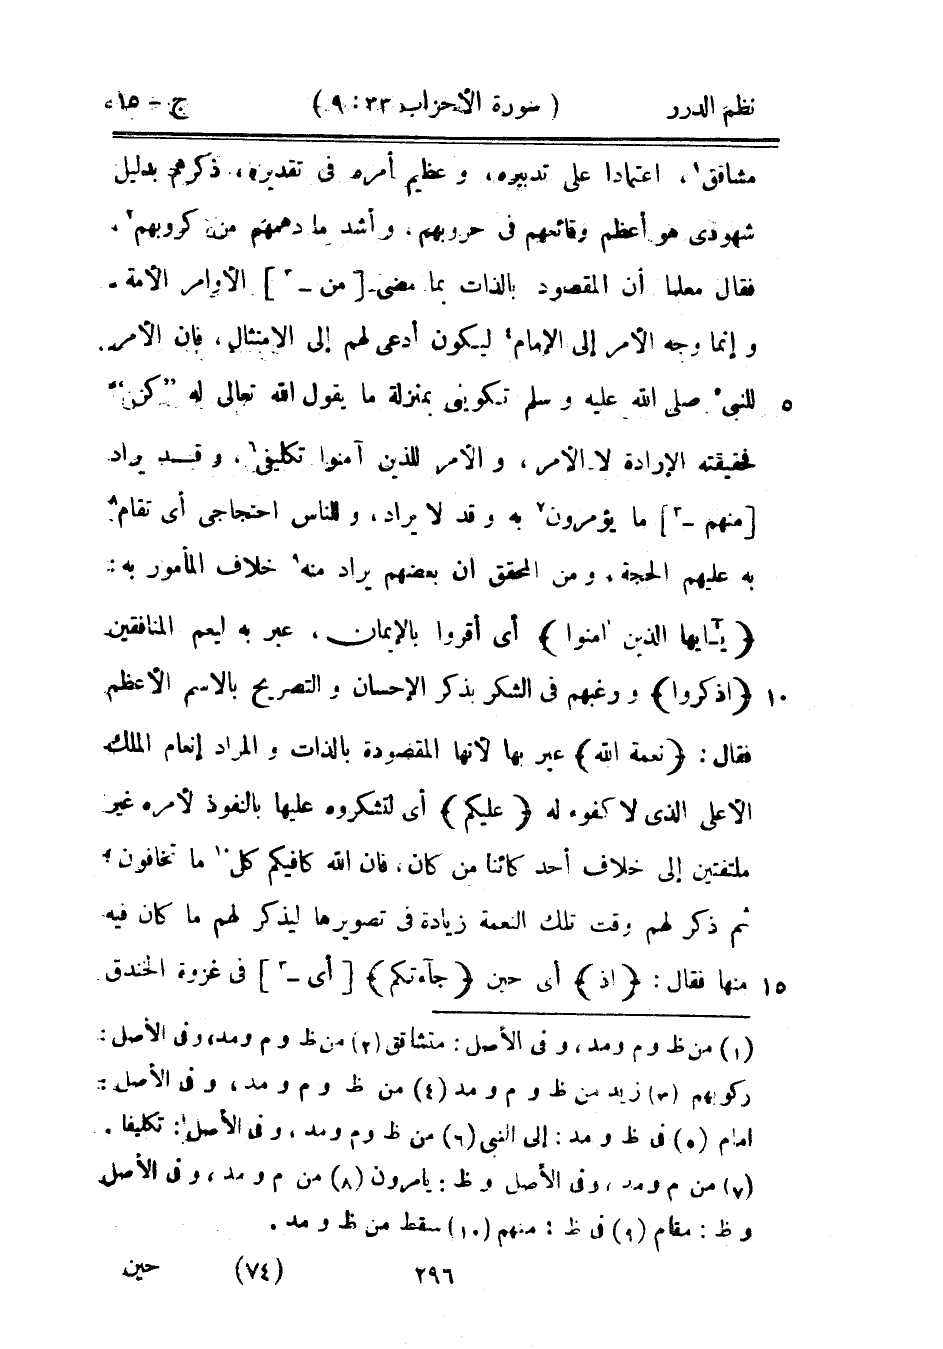 نظم الدرر ( سورة الأحزاب ٣٣ : ٩ ) ج – ١٥
مشاقق١ ، اعتمادا على تدبيره ، و عظيم أمره فى تقديره ، ذكرهم بدليل
شهودى هو أعظم وقائعهم فى حروبهم ، و أشد ما دهمهم من كروبهم٢ ،
فقال معلما أن المقصود بالذات بما مضى [ من – ٣ ] الأوامر الأمة ـ
و إنما وجه الأمر إلى الإمام٤ ليكون أدعى لهم إلى الامتثال ، فإن الأمر
٥ للنبى٥ صلى الله عليه و سلم تكوينى بمنزلة ما يقول الله تعالى له ”كن“
فحقيقته الإرادة لا الأمر ، و الأمر للذين آمنوا تكليفى٦ ، و قد يراد
[ منهم – ٣ ] ما يؤمرون٧ به و قد لا يراد ، و للناس احتجاجى أى تقام٨
به عليهم الحجة . و من المحقق أن بعضهم يراد منه٩ خلاف المأمور به :
﴿ يٰٓايها الذين اٰمنوا ﴾ أى أقروا بالإيمان ، عبر به ليعم المنافقين
١٠ ﴿اذكروا﴾ و رغبهم فى الشكر بذكر الإحسان و التصريح بالاسم الأعظم
فقال : ﴿ نعمة الله ﴾ عبر بها لأنها المقصودة بالذات و المراد إنعام الملك
الأعلى الذى لا كفوء له ﴿ عليكم ﴾ أى لتشكروه عليها بالنفوذ لأمره غير
ملتفتين إلى خلاف أحد كائنا من كان ، فان الله كافيكم كل١٠ ما تخافون ؛
ثم ذكر لهم وقت تلك النعمة زيادة فى تصويرها ليذكر لهم ما كان فيه
١٥ منها فقال : ﴿ اذ ﴾ أى حين ﴿ جآءتكم ﴾ [ أى – ٣ ] فى غزوة الخندق
(١) من ظ و م و مد ، و فى الأصل : متشاقق (٢) من ظ و م و مد ، و فى الأصل :
ركوبهم (٣) زيد من ظ و م و مد (٤) من ظ و م و مد ، و فى الأصل :
امام (٥) فى ظ و مد : إلى النبى (٦) من ظ و م و مد ، و فى الأصل : تكليفا .
(٧) من م و مد ، و فى الأصل و ظ : يامرون (٨) من م و مد ، و فى الأصل
و ظ : مقام (٩) فى ظ : منهم (١٠) سقط من ظ و مد .
٢٩٦ (٧٤) حين